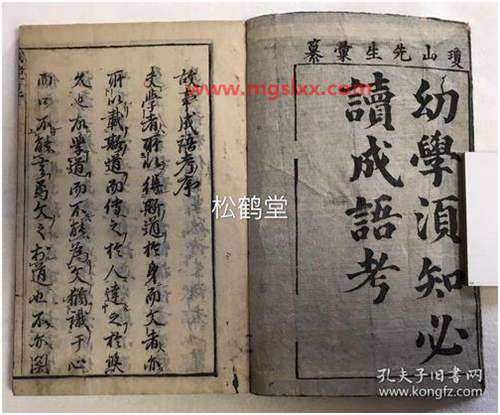 瓊山先生彙纂
幼學須知必
讀成語考
故事成語考序
夫學者所以得斯道於身而文者
所以載斯道而傳之於人達之於
也學道而不能為文猶識于心
而口不能言文之於道也不亦
www.mgslxx.com
松鹤堂
孔夫子旧书网
kongfz.com